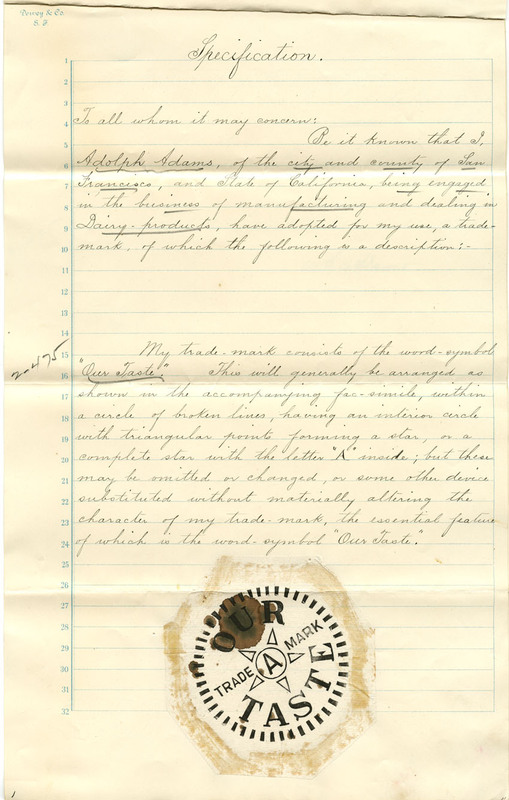 Dewey & Co.
S. F.
Specification.
To all whom it may concern:
Be it known that I,
Adolph Adams, of the city and county of San
Francisco, and State of California, being engaged
in the business of manufacturing and dealing in
Dairy-products, have adopted for my use, a trade-
mark, of which the following is a description:-
My trade-mark consists of the word-symbol
"Our Taste." This will generally be arranged as
shown in the accompanying fac-simile, within
a circle of broken lines, having an interior circle
with triangular points forming a star, or a
complete star with the letter "A" inside; but these
may be omitted or changed, or some other device
substituted without materially altering the
character of my trade-mark, the essential feature
of which is the word-symbol "Our Taste".
1
2
3
4
5
6
7
8
9
10
11
12
13
14
15
16
17
18
19
20
21
22
23
24
25
26
27
28
29
30
31
32
2475
OUR
TRADE A MARK
TASTE
1